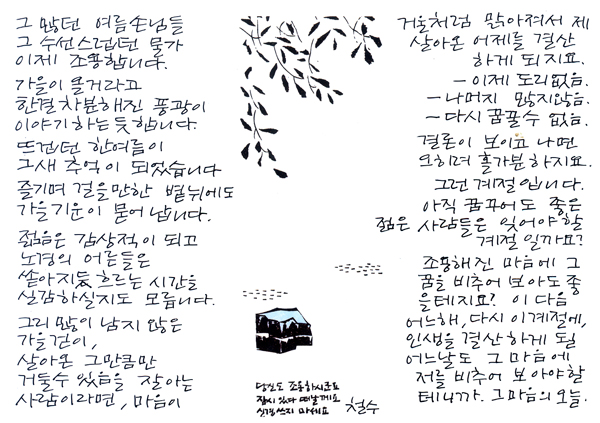 그 많던 여름손님들
그 수선스럽던 물가
이제 조용합니다.
가을이 올거라고
한결 차분해진 풍광이
이야기 하는듯 합니다.
뜨겁던 한여름이
그새 추억이 되었습니다
즐기며 걸을만한 볕뉘에도
가을기운이 묻어 납니다.
젊음은 감상적이 되고
노경의 어른들은
쏟아지듯 흐르는 시간을
실감하실지도 모릅니다.
그리 많이 남지 않은
가을걷이,
살아온 그만큼만
거둘수 있음을 잘아는
사람이라면, 마음이
거울처럼 맑아져서 제
살아온 어제를 결산
하게 되지요.
- 이제 도리없음.
- 나머지 많지않음.
- 다시 꿈꿀수 없음.
결론이 보이고 나면
오히려 홀가분 하지요.
그런 계절입니다.
아직 꿈꾸어도 좋은
젊은 사람들은 잊어야 할
계절 일까요?
조용해진 마음에 그
꿈을 비추어 보아도 좋
을테지요? 이 다음
어느해, 다시 이계절에,
인생을 결산 하게 될
어느날도 그 마음에
저를 비추어 보아야할
테니까. 그마음의 오늘.
당신도 조용하시군요
잠시 있다 떠날게요
신경쓰지 마세요
철수